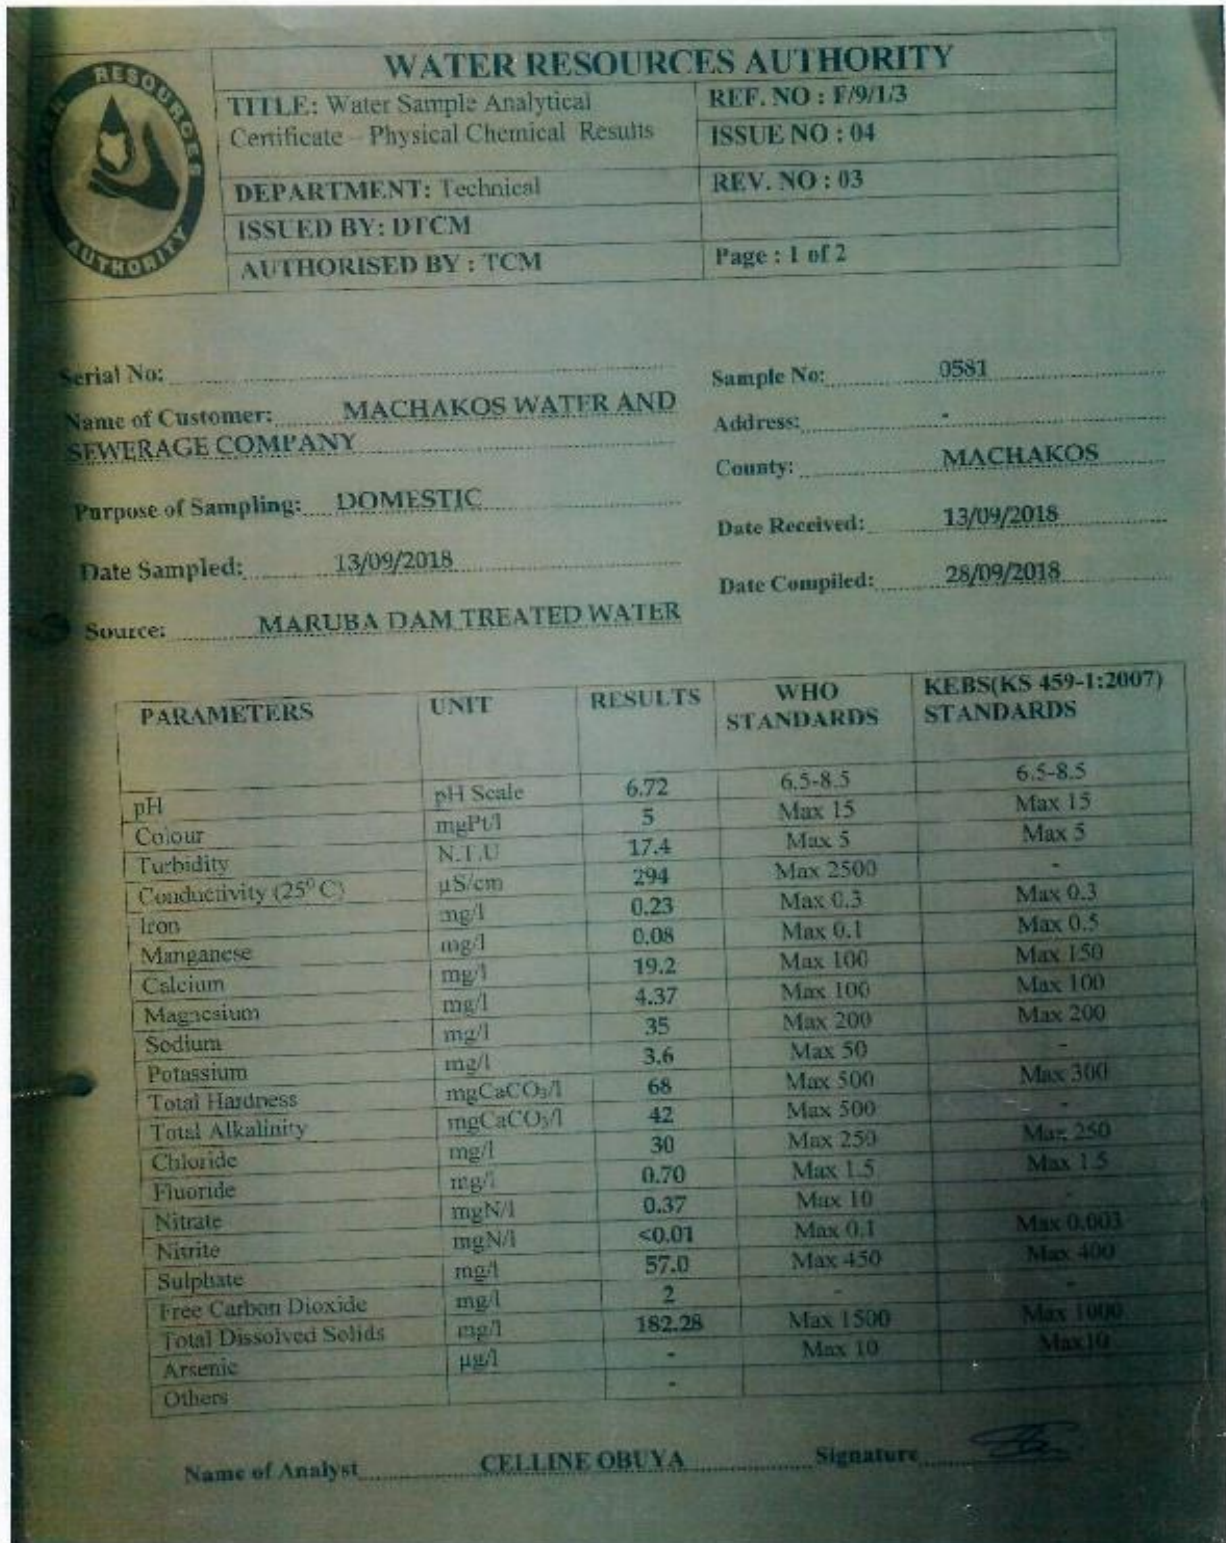 WATER RESOURCES AUTHORITY
RESOURCES
AUTHORITY
TITLE: Water Sample Analytical
Certificate – Physical Chemical Results
REF. NO : F/9/1/3
ISSUE NO : 04
DEPARTMENT: Technical
REV. NO : 03
ISSUED BY: DTCM
AUTHORISED BY : TCM
Page : 1 of 2
Serial No:
Sample No: 0581
Name of Customer: MACHAKOS WATER AND
SEWERAGE COMPANY
Address: -
County: MACHAKOS
Purpose of Sampling: DOMESTIC
Date Received: 13/09/2018
Date Sampled: 13/09/2018
Date Compiled: 28/09/2018
Source: MARUBA DAM TREATED WATER
PARAMETERS UNIT RESULTS WHO STANDARDS KEBS(KS 459-1:2007) STANDARDS
pH pH Scale 6.72 6.5-8.5 6.5-8.5
Colour mgPt/l 5 Max 15 Max 15
Turbidity N.T.U 17.4 Max 5 Max 5
Conductivity (25⁰ C) µS/cm 294 Max 2500 -
Iron mg/l 0.23 Max 0.3 Max 0.3
Manganese mg/l 0.08 Max 0.1 Max 0.5
Calcium mg/l 19.2 Max 100 Max 150
Magnesium mg/l 4.37 Max 100 Max 100
Sodium mg/l 35 Max 200 Max 200
Potassium mg/l 3.6 Max 50 -
Total Hardness mgCaCO₃/l 68 Max 500 Max 300
Total Alkalinity mgCaCO₃/l 42 Max 500 -
Chloride mg/l 30 Max 250 Max 250
Fluoride mg/l 0.70 Max 1.5 Max 1.5
Nitrate mgN/l 0.37 Max 10 -
Nitrite mgN/l <0.01 Max 0.1 Max 0.003
Sulphate mg/l 57.0 Max 450 Max 400
Free Carbon Dioxide mg/l 2 - -
Total Dissolved Solids mg/l 182.28 Max 1500 Max 1000
Arsenic µg/l - Max 10 Max10
Others -
Name of Analyst CELLINE OBUYA Signature